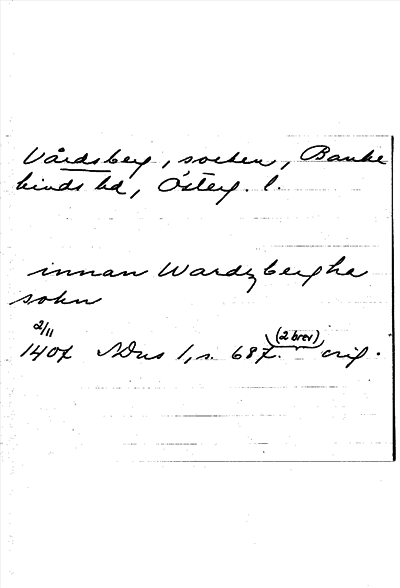 Vårdsberg, socken, Banke
kinds hd, Österg. l.
innan Wardzbergha
sokn
2/11
1407 SDns 1, s. 687. (2 brev) orig.